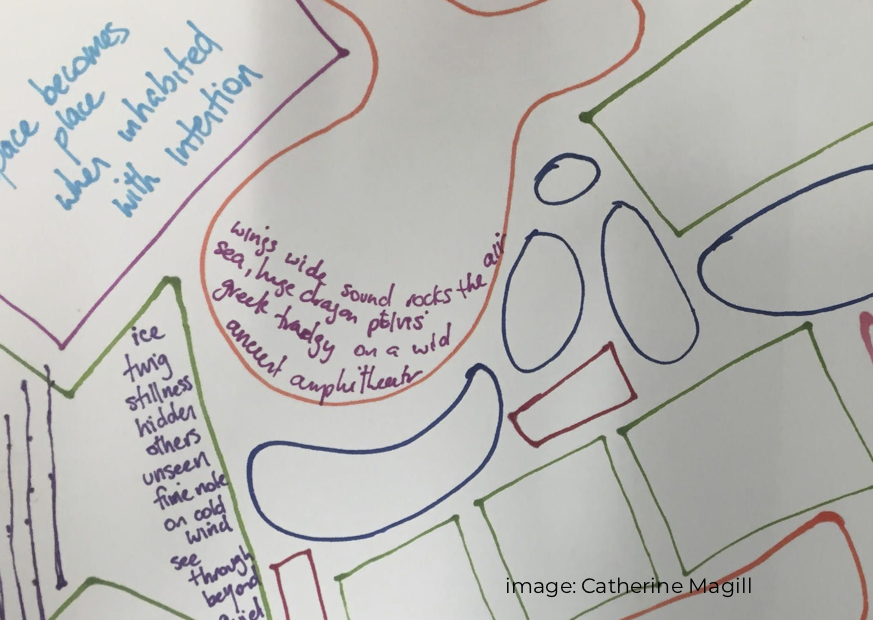 becomes
place
when inhabited
with intention
wings wide sound rocks the air
sea, huge dragon
greek on a wild
ancient
ice
twig
stillness
hidden
others
unseen
fine note
on cold
wind
see
through
beyond
image: Catherine Magill